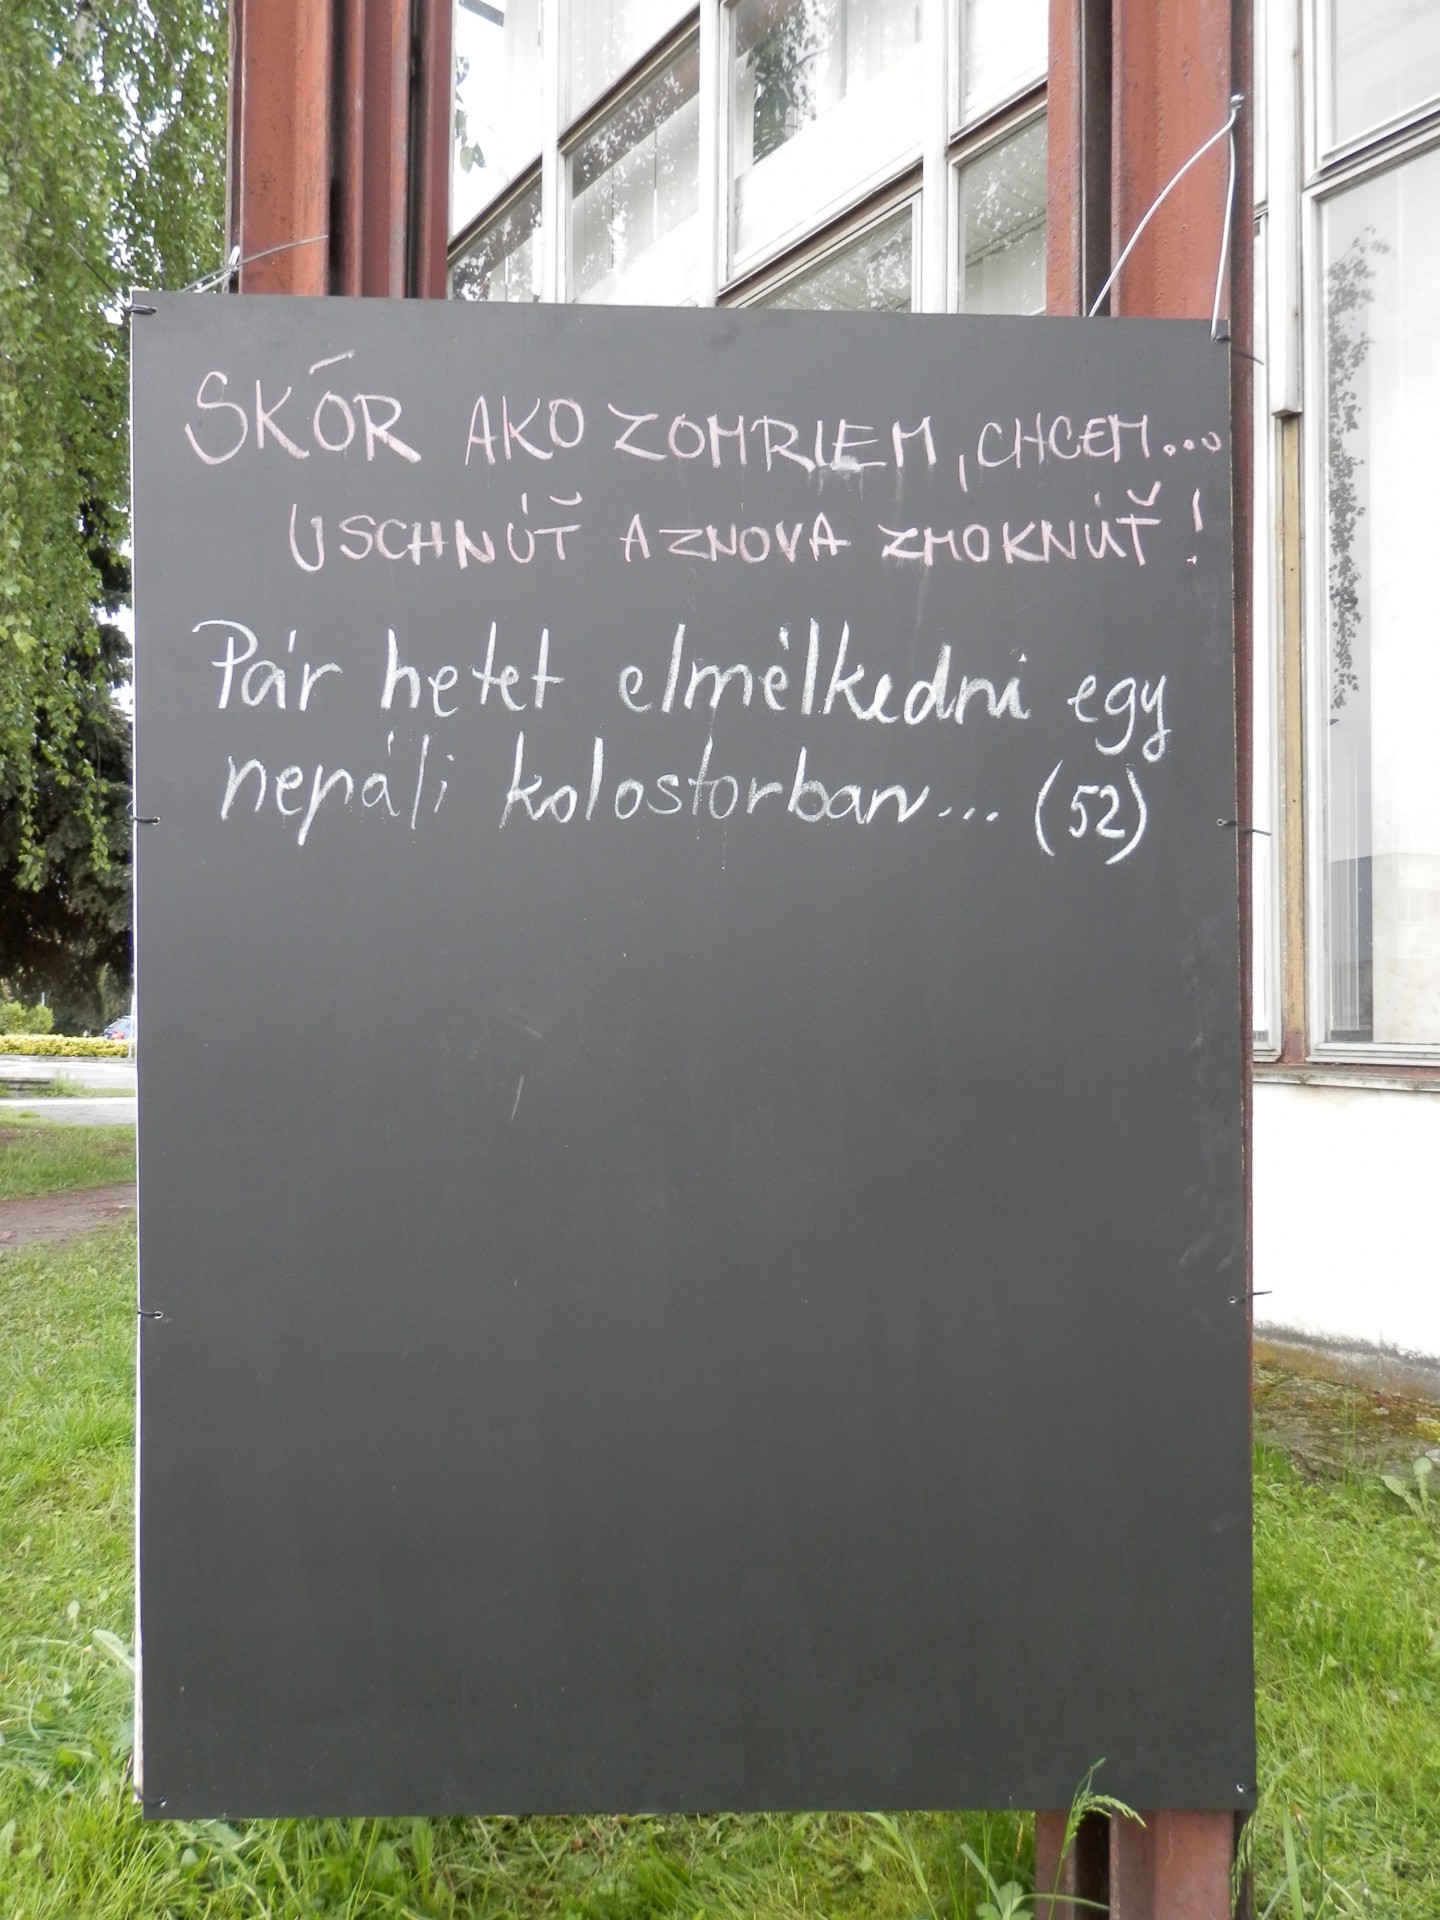 SKÓR AKO ZOMRIEM, CHCEM...
USCHNÚŤ A ZNOVA ZMOKNÚŤ!
Pár hetet elmélkedni egy
nepáli kolostorban... (52)